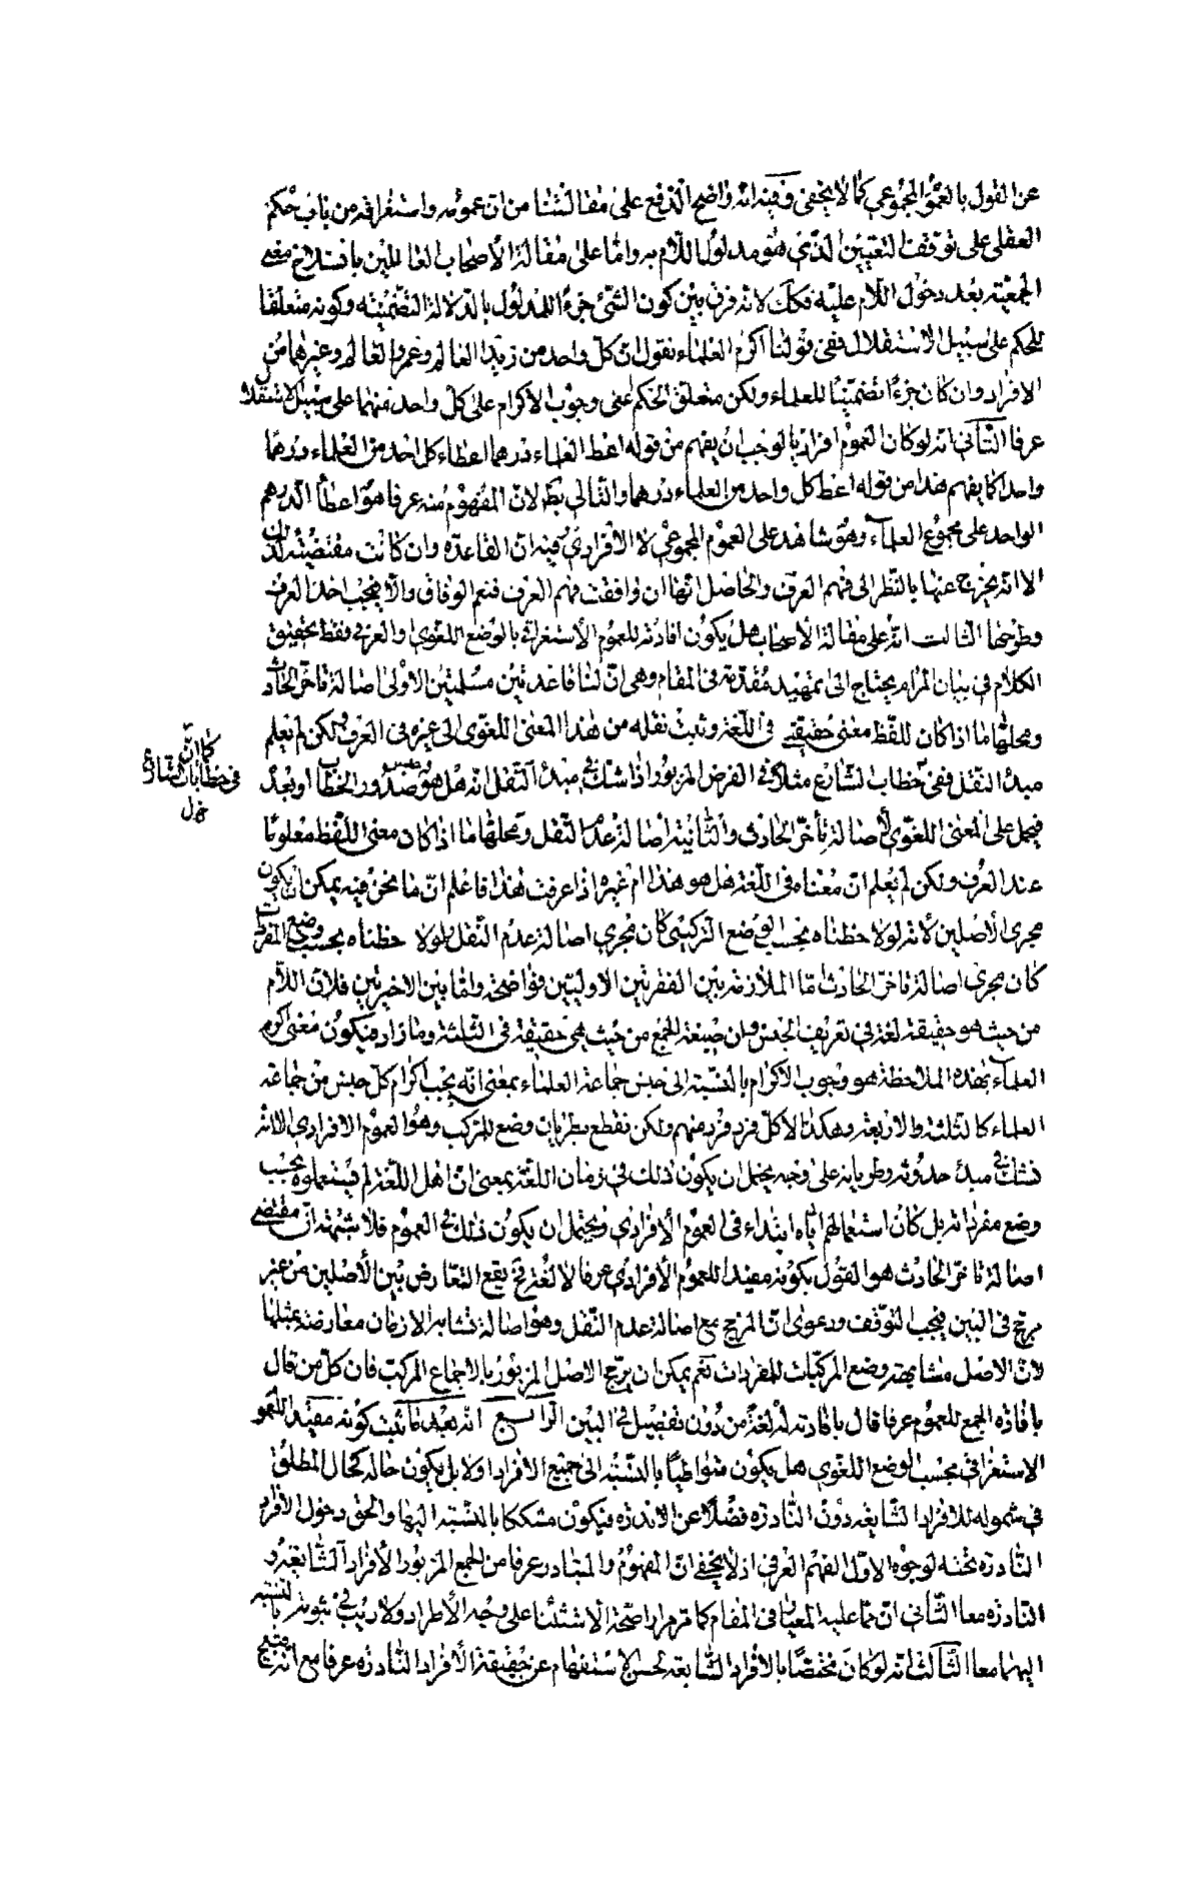 عن القول بالعموم المجموعي كما لا يخفى وفيه انه واضح الدفع على مقالتنا من ان عمومه واستغراقه من باب حكم
العقل على توقف التعيين الذي هو مدلول اللام به واما على مقالة الأصحاب القائلين بانسلاخ معنى
الجمعية بعد دخول اللام عليه فكك لانه فرق بين كون الشئ جزء المدلول بالدلالة التضمنية وكونه متعلقا
للحكم على سبيل الاستقلال ففى قولنا اكرم العلماء نقول ان كل واحد من زيد العالم وعمرو العالم وغيرهما من
الافراد وان كان جزءا تضمنيا للعلماء ولكن متعلق الحكم اعنى وجوب الاكرام على كل واحد منهما على سبيل الاستقلال
عرفا الثانى انه لو كان العموم افراديا لوجب ان يفهم من قوله اعط العلماء درهما اعطاء كل احد من العلماء درهما
واحدا كما يفهم هذا من قوله اعط كل واحد من العلماء درهما والتالى بط لان المفهوم منه عرفا هو اعطاء الدرهم
الواحد على مجموع العلماء وهو شاهد على العموم المجموعي لا الافرادي وفيه ان القاعدة وان كانت مقتضية لذلك
الا انه يخرج عنها بالنظر الى فهم العرف والحاصل انها ان وافقت فهم العرف فنعم الوفاق والا فيجب اخذ العرف
وطرحها الثالث انه على مقالة الاصحاب هل يكون افادته للعموم الاستغراقى بالوضع اللغوى او العرفى فقط تحقيق
الكلام في بيان المرام يحتاج الى تمهيد مقدمة فى المقام وهى ان لنا قاعدتين مسلمتين الاولى اصالة تاخر الحادث
ومحلها ما اذا كان للفظ معنى حقيقى فى اللغة وثبت نقله من هذا المعنى اللغوى الى غيره فى العرف ولكن لم يعلم
مبدء النقل ففى خطاب الشارع مثلا فى الفرض المزبور اذا شك فى مبدء النقل انه هل هو صدور الخطاب او بعده
كما ان
فى خطابات الشارع
فيحمل على المعنى اللغوى لأصالة تأخر الحادث والثانية اصالة عدم النقل ومحلها ما اذا كان معنى اللفظ معلوما
عند العرف ولكن لم يعلم ان معناه فى اللغة هل هو هذا ام غيره اذا عرفت هذا فاعلم ان ما نحن فيه يمكن ان يكون
مجرى الأصلين لأنه لو لاحظناه بحسب الوضع التركيبى كان مجرى اصالة عدم النقل ولو لاحظناه بحسب وضع المفردات
كان مجرى اصالة تاخر الحادث اما الملازمة بين الفقرتين الاوليين فواضحة واما بين الاخيرتين فلان اللام
من حيث هو حقيقة لغة فى تعريف الجنس وان صيغة الجمع من حيث هى حقيقة فى الثلثة وما زاد فيكون معنى اكرم
العلماء بهذه الملاحظة هو وجوب الاكرام بالنسبة الى جنس جماعة العلماء بمعنى انه يجب اكرام كل جنس من جماعة
العلماء كالثلثة والاربعة وهكذا لا كل فرد فرد منهم ولكن نقطع بطريان وضع للمركب وهو العموم الافرادي الا انه
نشك فى مبدء حدوثه وطريانه على وجه يحتمل ان يكون ذلك فى زمان اللغة بمعنى ان اهل اللغة لم يستعملوه بحسب
وضع مفرداته بل كان استعمالهم اياه ابتداء فى العموم الافرادي ويحتمل ان يكون ذلك فى العموم فلا شبهة ان مقتضى
اصالة تاخر الحادث هو القول بكونه مفيدا للعموم الأفرادي عرفا لا لغة فح يقع التعارض بين الأصلين من غير
مرجح فى البين فيجب التوقف ودعوى ان المرجح مع اصالة عدم النقل وهو اصالة تشابه الازمان معارضة بمثلها
لان الاصل مشابهة وضع المركبات للمفردات نعم يمكن ان يرجح الاصل المزبور بالاجماع المركب فان كل من قال
بافادة الجمع للعموم عرفا قال بافادته له لغة من دون تفصيل فى البين الرابع انه بعد ما ثبت كونه مفيدا للعموم
الاستغراقى بحسب الوضع اللغوى هل يكون متواطيا بالنسبة الى جميع الافراد او لا بل يكون حاله كحال المطلق
فى شموله للافراد الشايعة دون النادرة فضلا عن الاندرة فيكون مشككا بالنسبة اليها والحق دخول الافراد
النادرة تحته لوجوه الاول الفهم العرفى اذ لا يخفى ان المفهوم والمتبادر عرفا من الجمع المزبور الأفراد الشايعة و
النادرة معا الثانى ان مما عليه المعيار فى المقام كما مر مرارا صحة الاستثناء على وجه الأطراد ولا ريب فى ثبوته بالنسبة
اليهما معا الثالث انه لو كان مختصا بالافراد الشايعة لحسن الاستفهام عن حقيقة الأفراد النادرة عرفا مع انه قبيح